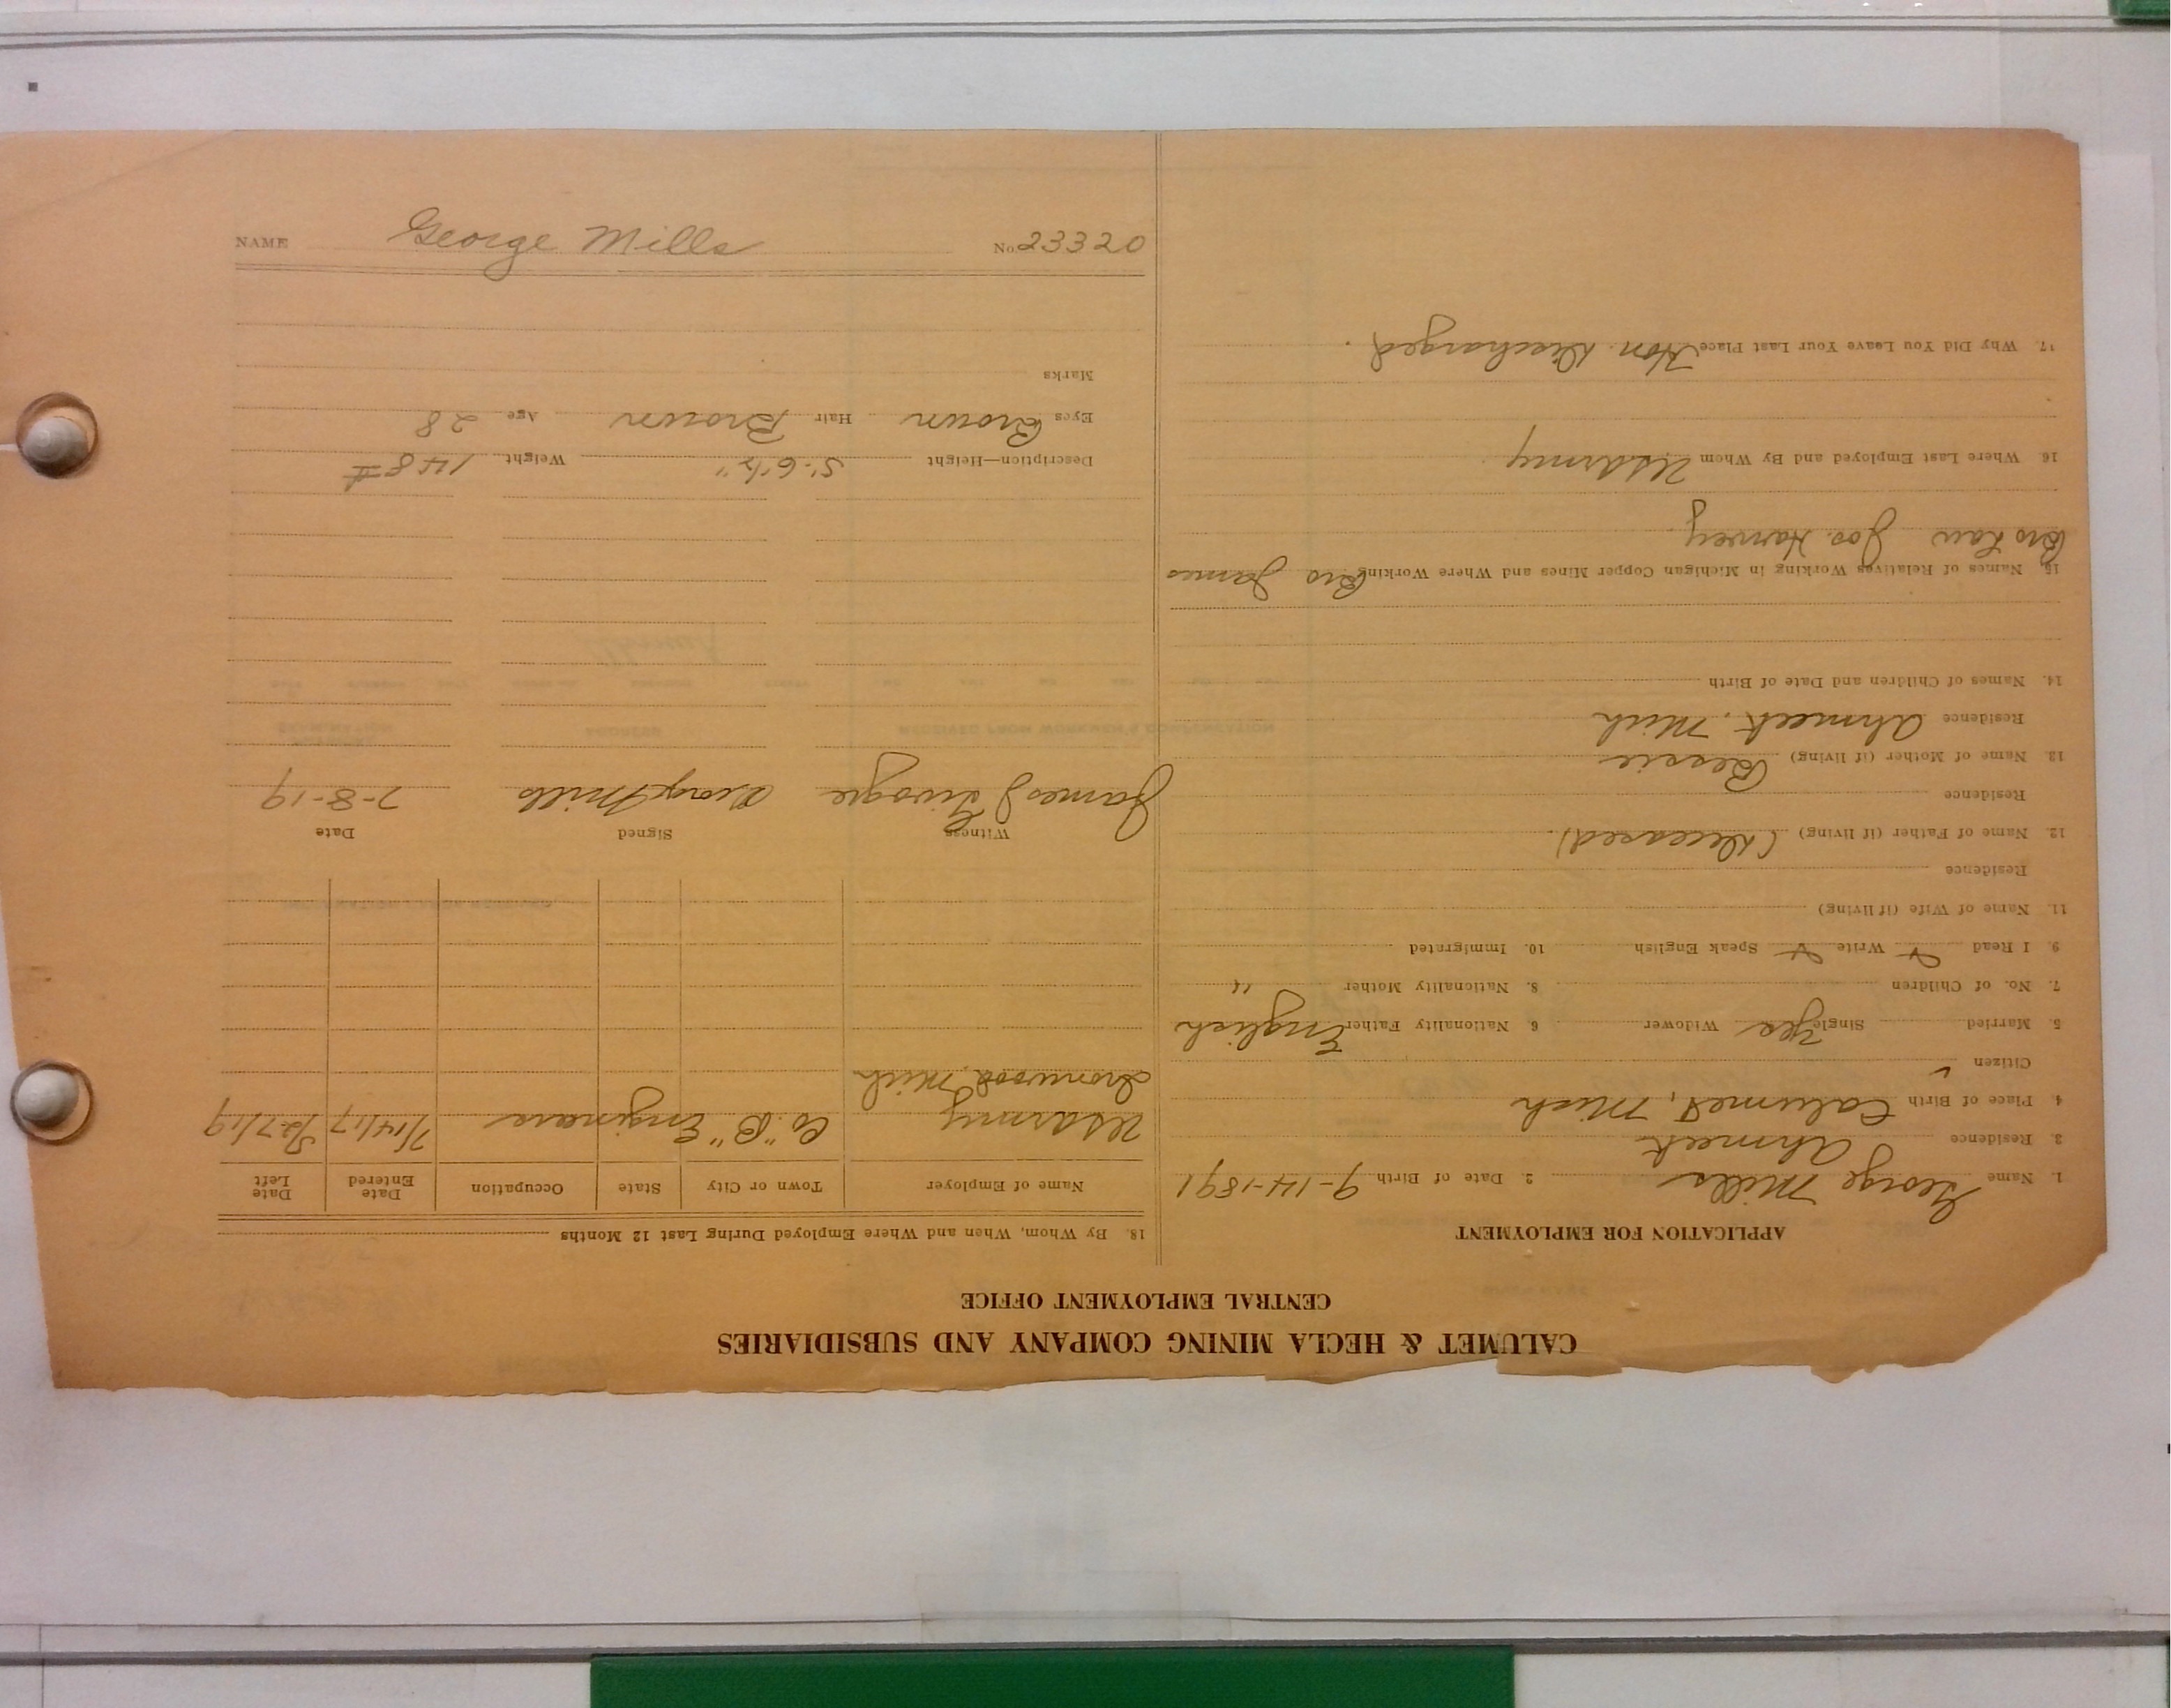 CALUMET & HECLA MINING COMPANY AND SUBSIDIARIES
CENTRAL EMPLOYMENT OFFICE
APPLICATION FOR EMPLOYMENT
1. Name George Mills 2. Date of Birth 9-14-1891
3. Residence Ahmeek
4. Place of Birth Calumet, Mich
Citizen ✓
5. Married Single Yes Widower 6. Nationality Father English
7. No. of Children 8. Nationality Mother "
9. I Read Write Speak English 10. Immigrated
11. Name of Wife (if living)
Residence
12. Name of Father (if living) (Deceased).
Residence
13. Name of Mother (if living) Bessie
Residence Ahmeek, Mich
14. Names of Children and Date of Birth
15. Names of Relatives Working in Michigan Copper Mines and Where Working Bro James
Bro Law Jos. Harvey
16. Where Last Employed and By Whom US Army
17. Why Did You Leave Your Last Place Hon. Discharged.
18. By Whom, When and Where Employed During Last 12 Months
Name of Employer Town or City State Occupation Date Entered Date Left
US Army Co. "B" Engineers 7/14/17 5/27/19
Ironwood, Mich
Witness Signed Date
James J George Mills 7-8-19
Description—Height 5'-6 1/2" Weight 148 #
Eyes Brown Hair Brown Age 28
Marks
NAME George Mills No 23320